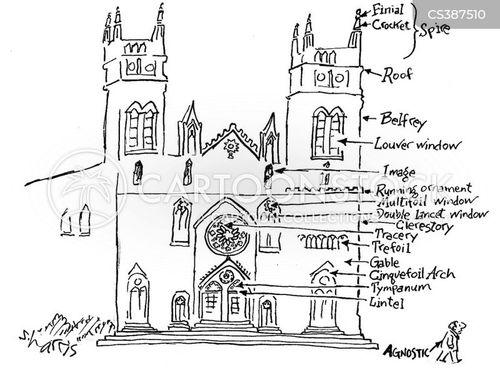 CS387510
Finial
Crocket
Spire
Roof
Belfrey
Louver window
Image
Running ornament
Multifoil window
Double Lancet window
Clerestory
Tracery
Trefoil
Gable
Cinquefoil Arch
Tympanum
Lintel
AGNOSTIC
S. Harris
CARTOONSTOCK